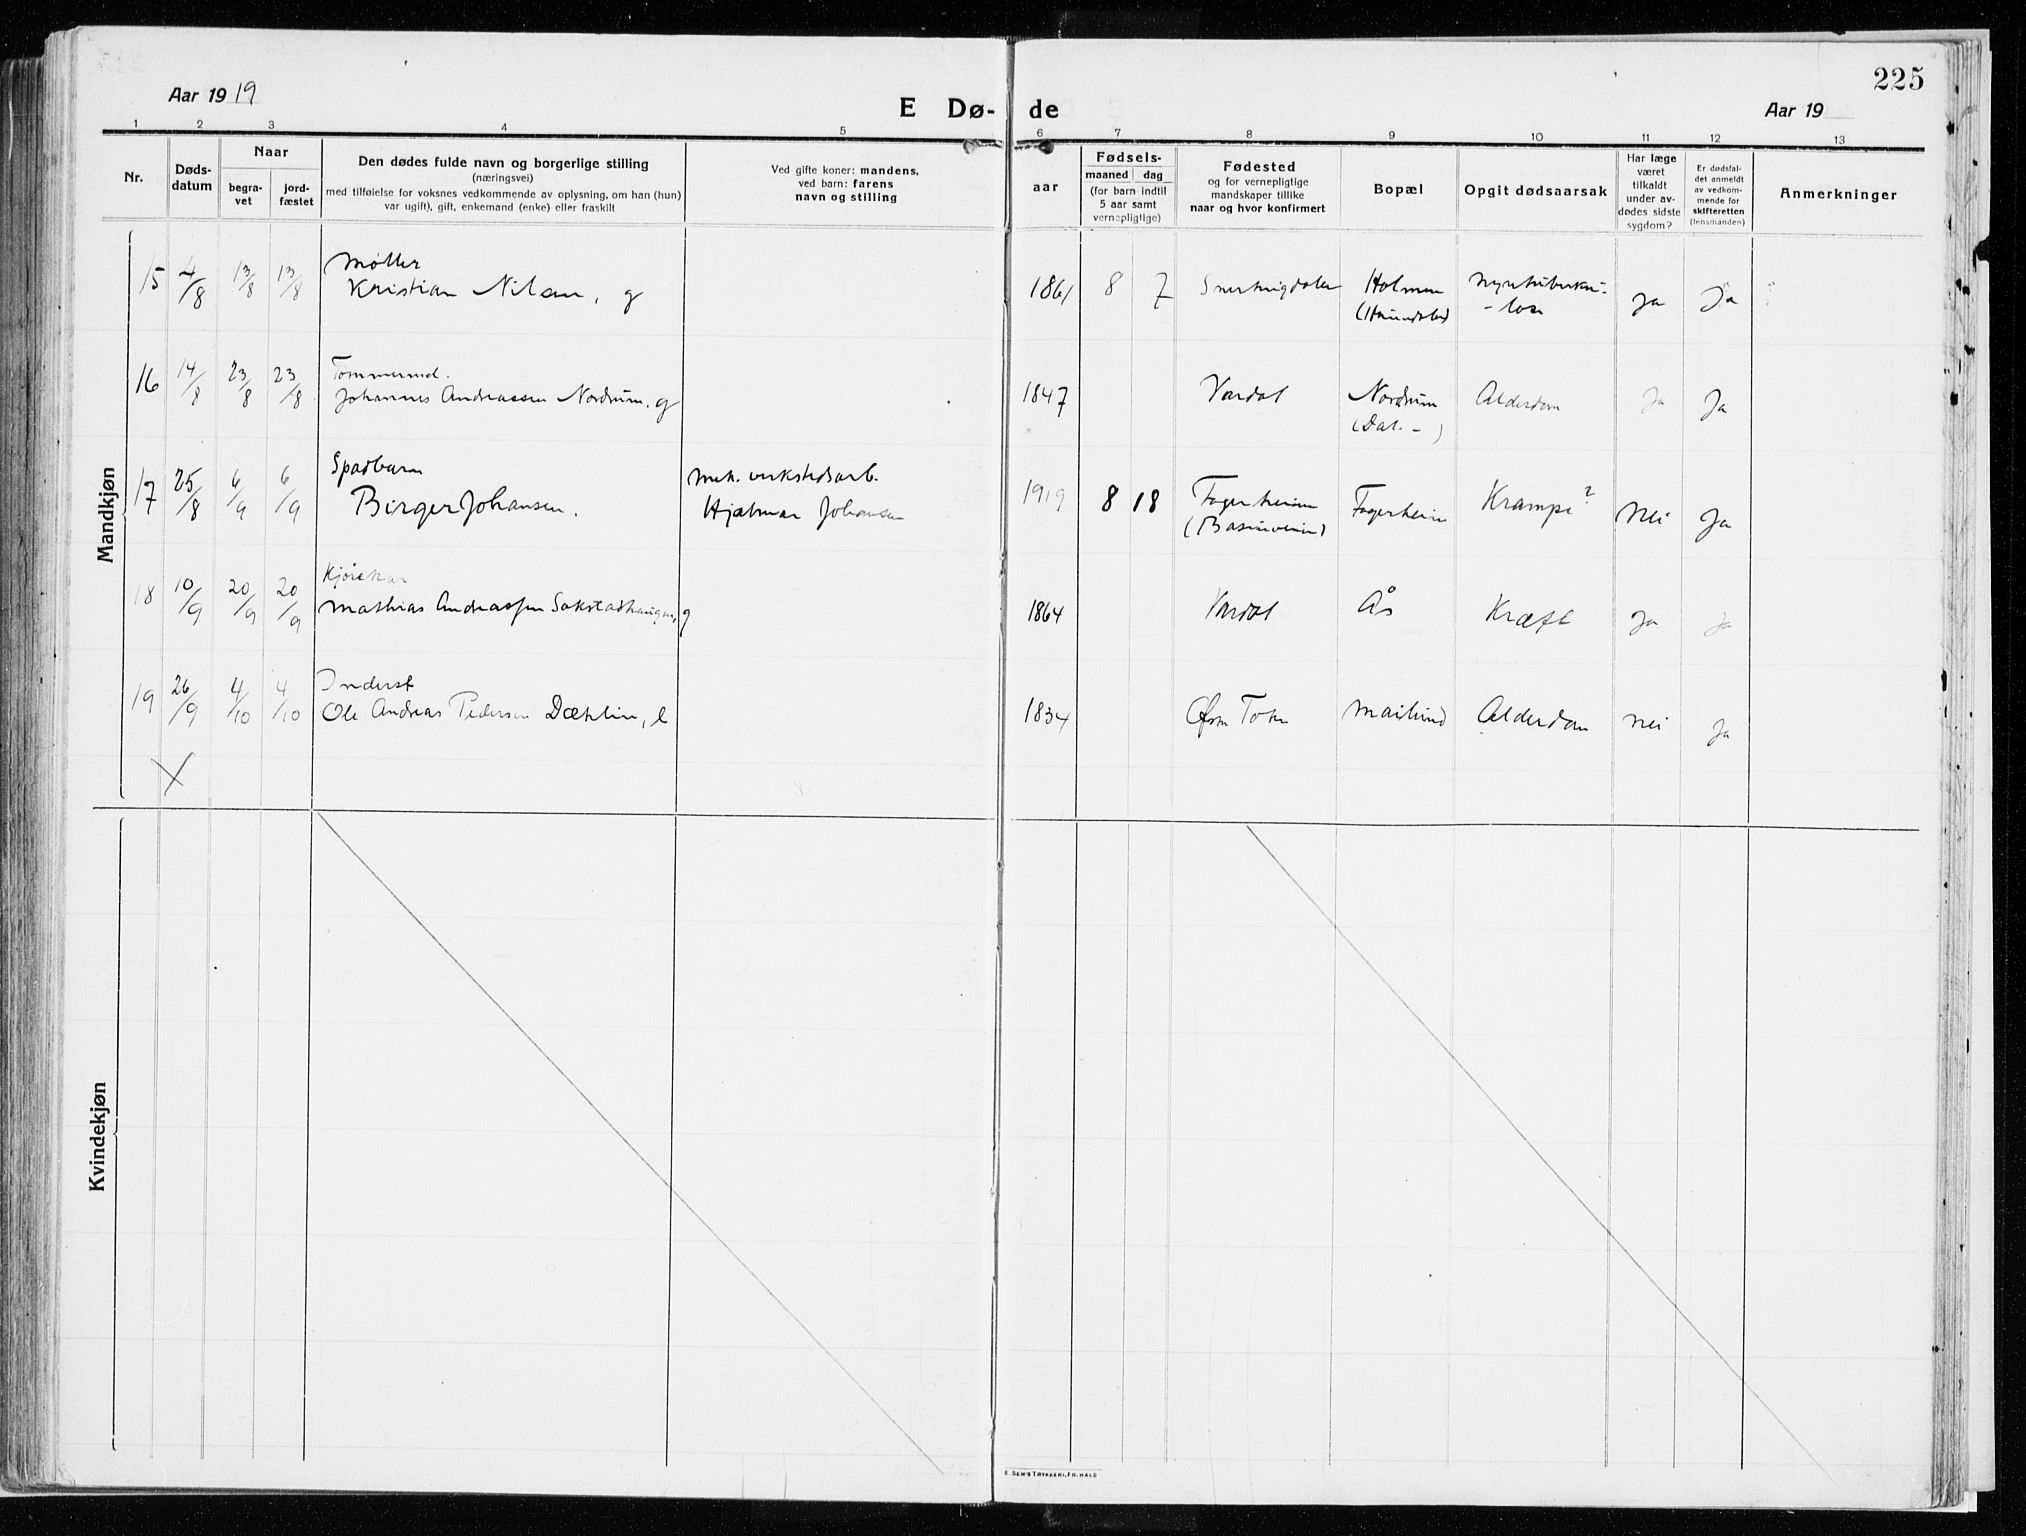 225
Aar 1919
E Dø-
de
Aar 19
1 2 3 4 5 6 7 8 9 10 11 12 13
Nr.
Døds-
datum
Naar
begra-
vet
jord-
fæstet
Den dødes fulde navn og borgerlige stilling
(næringsvei)
med tilføielse for voksnes vedkommende av oplysning, om han (hun)
var ugift), gift, enkemand (enke) eller fraskilt
Ved gifte koner: mandens,
ved barn: farens
navn og stilling
aar
Fødsels-
maaned dag
(for barn indtil
5 aar samt
vernepligtige)
Fødested
og for vernepligtige
mandskaper tillike
naar og hvor konfirmert
Bopæl
Opgit dødsaarsak
Har læge
været
tilkaldt
under av-
dødes sidste
sygdom?
Er dødsfal-
det anmeldt
av vedkom-
mende for
skifteretten
(lensmanden)
Anmerkninger
Mandkjøn
15 4/8 13/8 13/8
Møller
Kristian Nilsen, g
1861 8 7
Holmen
Ja Ja
16 14/8 23/8 23/8
Tømmermd.
Johannes Andreassen Nordrum, g
1847 Vardal Nordrum
(Dal. - )
Alderdom Ja Ja
17 25/8 6/9 6/9
Spædbarn
Birger Johansen.
mek. verkstedsarb.
Hjalmar Johansen
1919 8 18 Fagerheim
Fagerheim Krampe? Nei Ja
18 10/9 20/9 20/9
Kjørekar
Mathias Andreassen Sakstadhaugen, g
1864 Vardal Ås Kræft Ja Ja
19 26/9 4/10 4/10
Inderst
Ole Andreas Pedersen Dæhlin, e
1834 Østre Toten Mailund Alderdom Nei Ja
Kvindekjøn
E. SEM'S TRYKKERI, FR.HALD